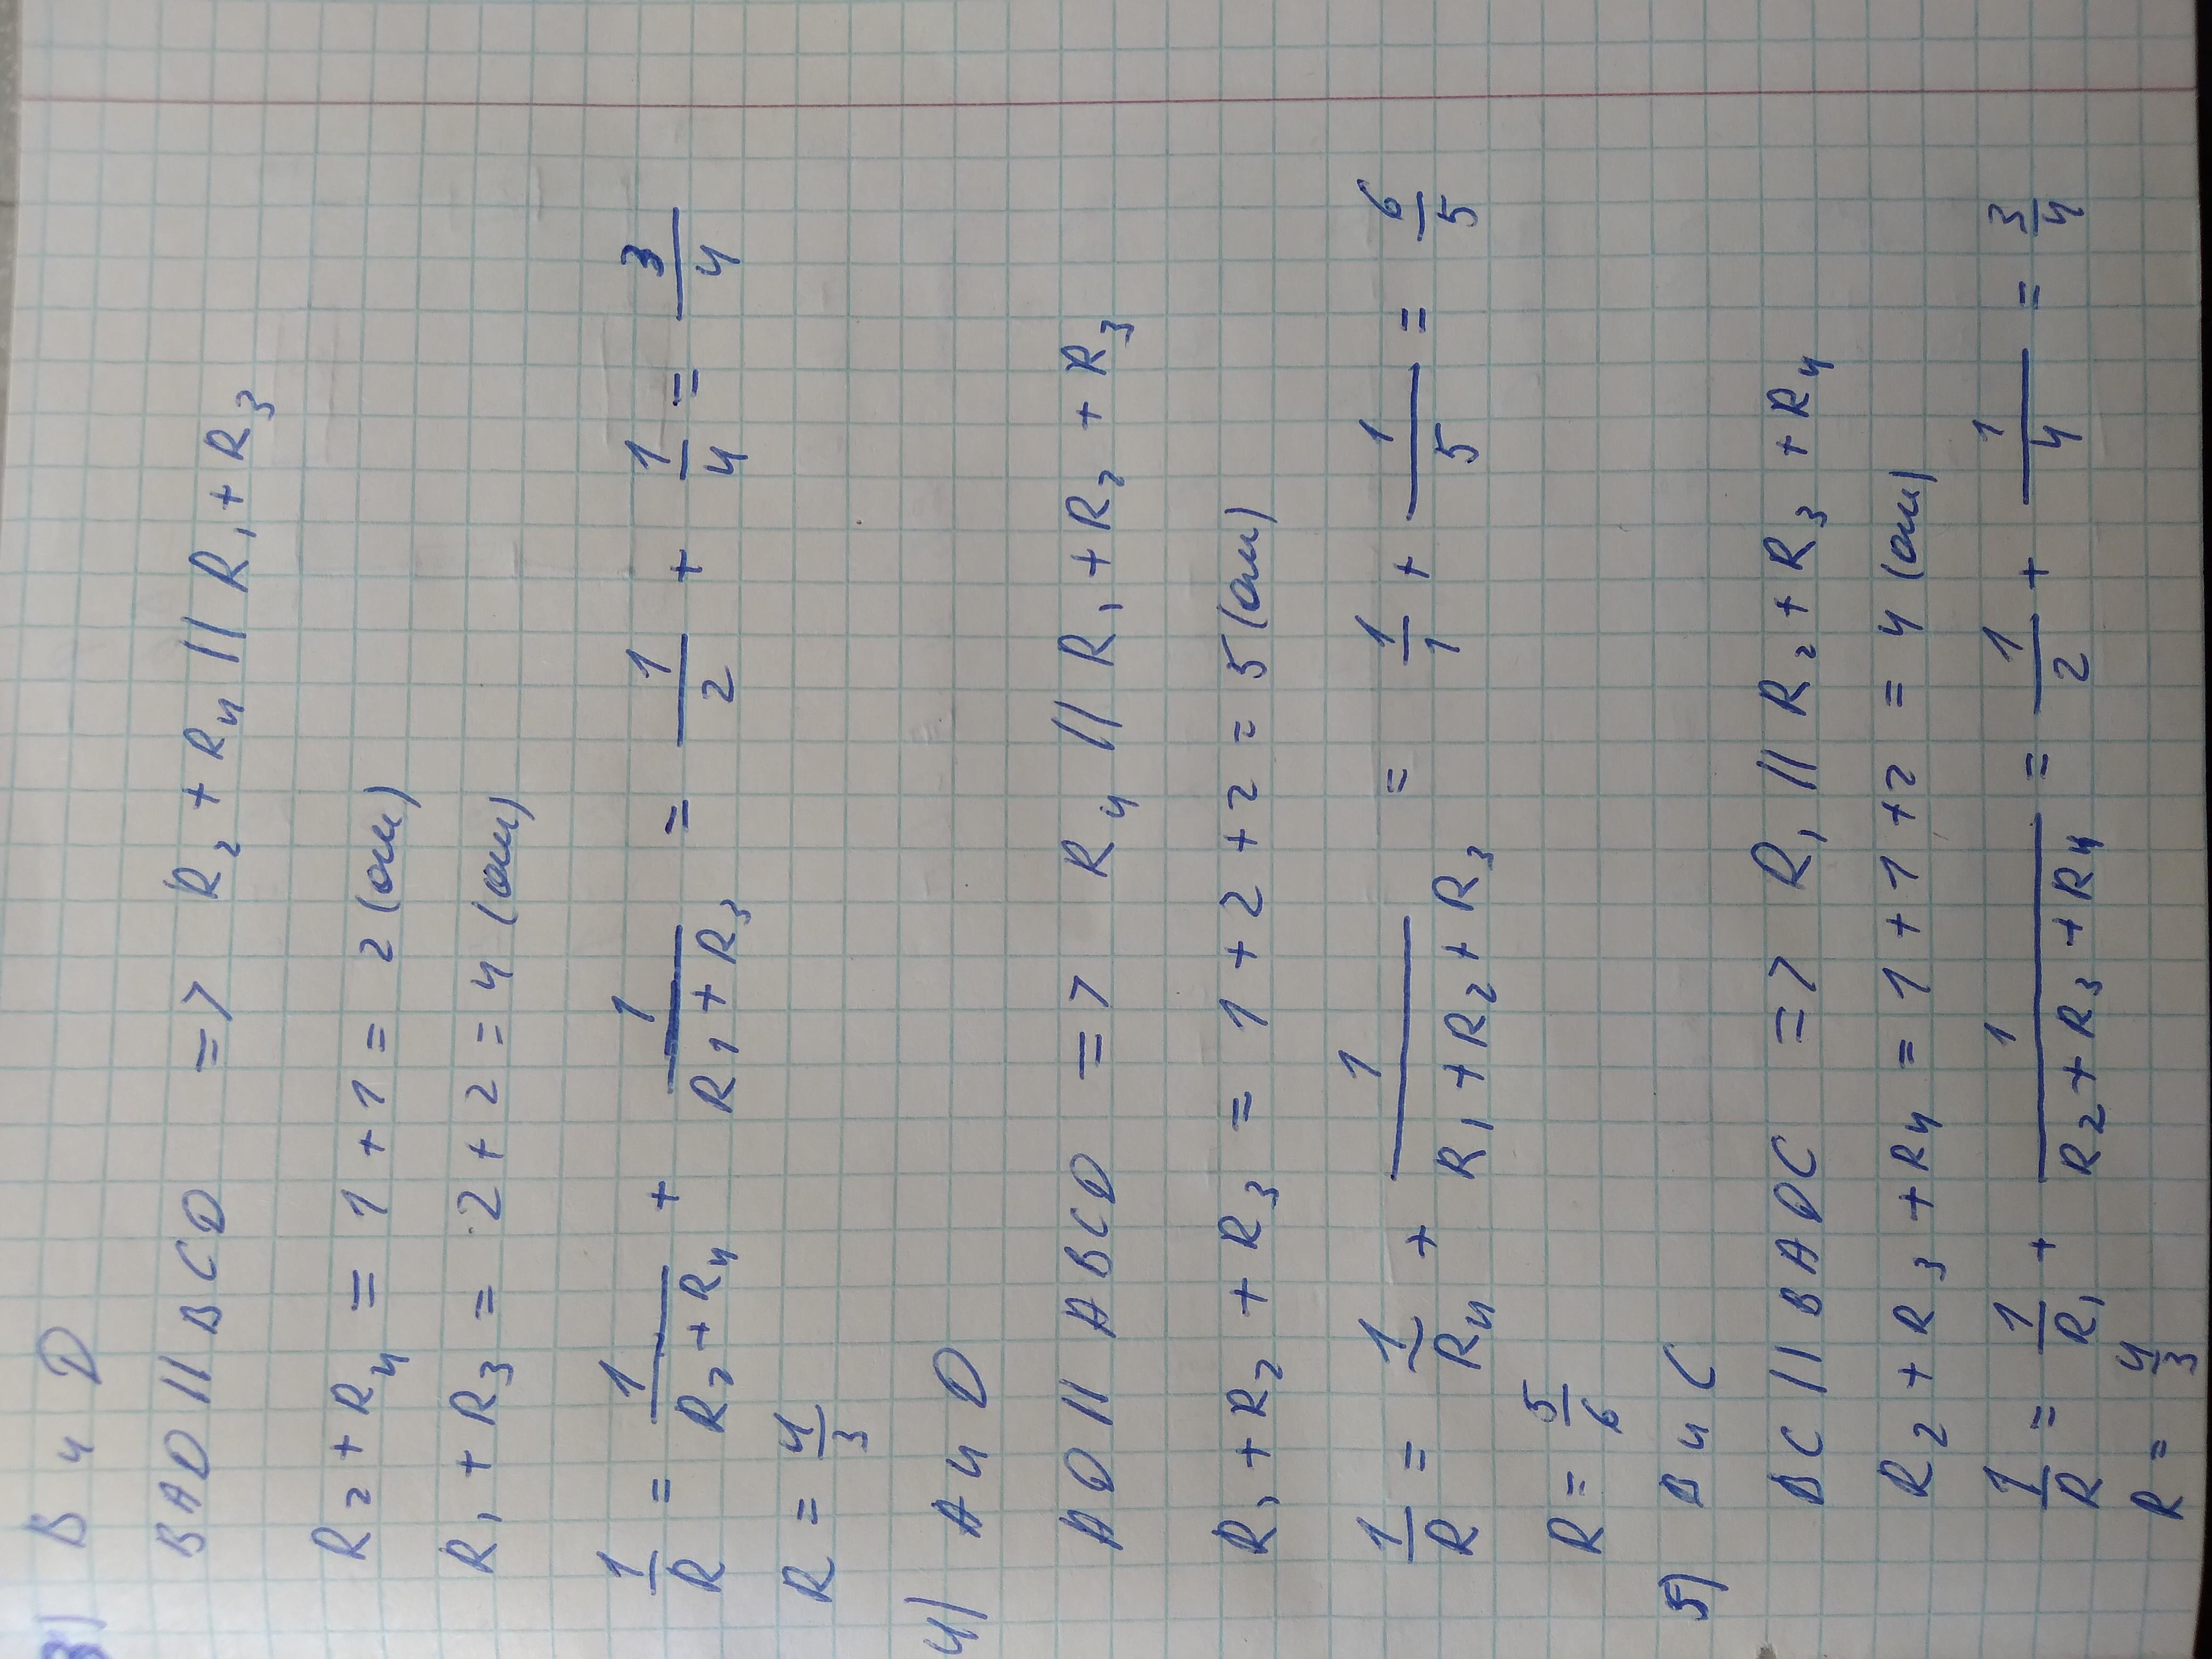 3) В и D
BAD || BCD => R₂ + R₄ || R₁ + R₃
R₂ + R₄ = 1 + 1 = 2 (ом)
R₁ + R₃ = 2 + 2 = 4 (ом)
1/R = 1/(R₂ + R₄) + 1/(R₁ + R₃) = 1/2 + 1/4 = 3/4
R = 4/3
4) А и D
AD || ABCD => R₄ || R₁ + R₂ + R₃
R₁ + R₂ + R₃ = 1 + 2 + 2 = 5 (ом)
1/R = 1/R₄ + 1/(R₁ + R₂ + R₃) = 1/1 + 1/5 = 6/5
R = 5/6
5) В и С
BC || BADC => R₁ || R₂ + R₃ + R₄
R₂ + R₃ + R₄ = 1 + 1 + 2 = 4 (ом)
1/R = 1/R₁ + 1/(R₂ + R₃ + R₄) = 1/2 + 1/4 = 3/4
R = 4/3